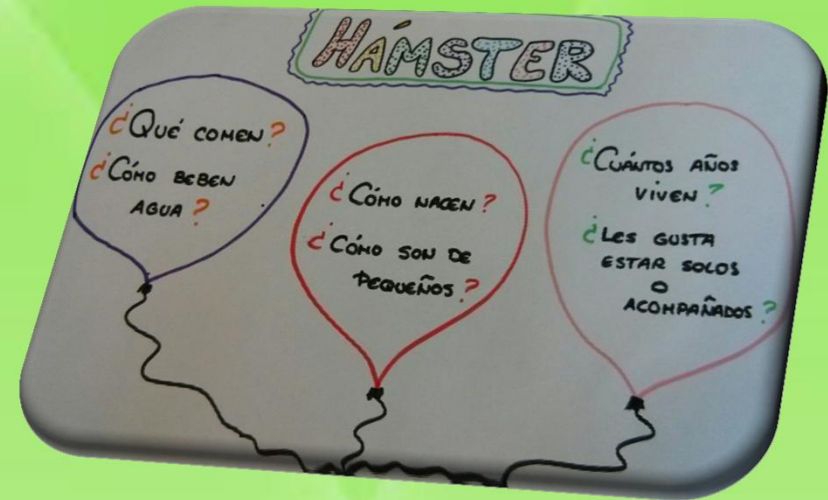 HÁMSTER
¿QUÉ COMEN?
¿CÓMO BEBEN
AGUA?
¿CÓMO NACEN?
¿CÓMO SON DE
PEQUEÑOS?
¿CUÁNTOS AÑOS
VIVEN?
¿LES GUSTA
ESTAR SOLOS
O
ACOMPAÑADOS?